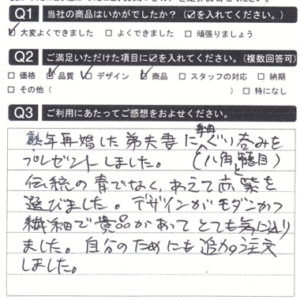 Q1 当社の商品はいかがでしたか？（☑を入れてください。）
☑大変よくできました □よくできました □頑張りましょう
Q2 ご満足いただけた項目に☑を入れてください。（複数回答可）
□価格 ☑品質 ☑デザイン ☑商品 □スタッフの対応 □納期
□その他（ ）□特になし
Q3 ご利用にあたってご感想をおよせください。
熟年再婚した弟夫妻に ぐい呑みを
プレゼントしました。（八角籠目）
伝統の青でなく、あえて赤紫を
選びました。デザインがモダンかつ
繊細で貴品があってとても気に入り
ました。自分のためにも追加注文
しました。